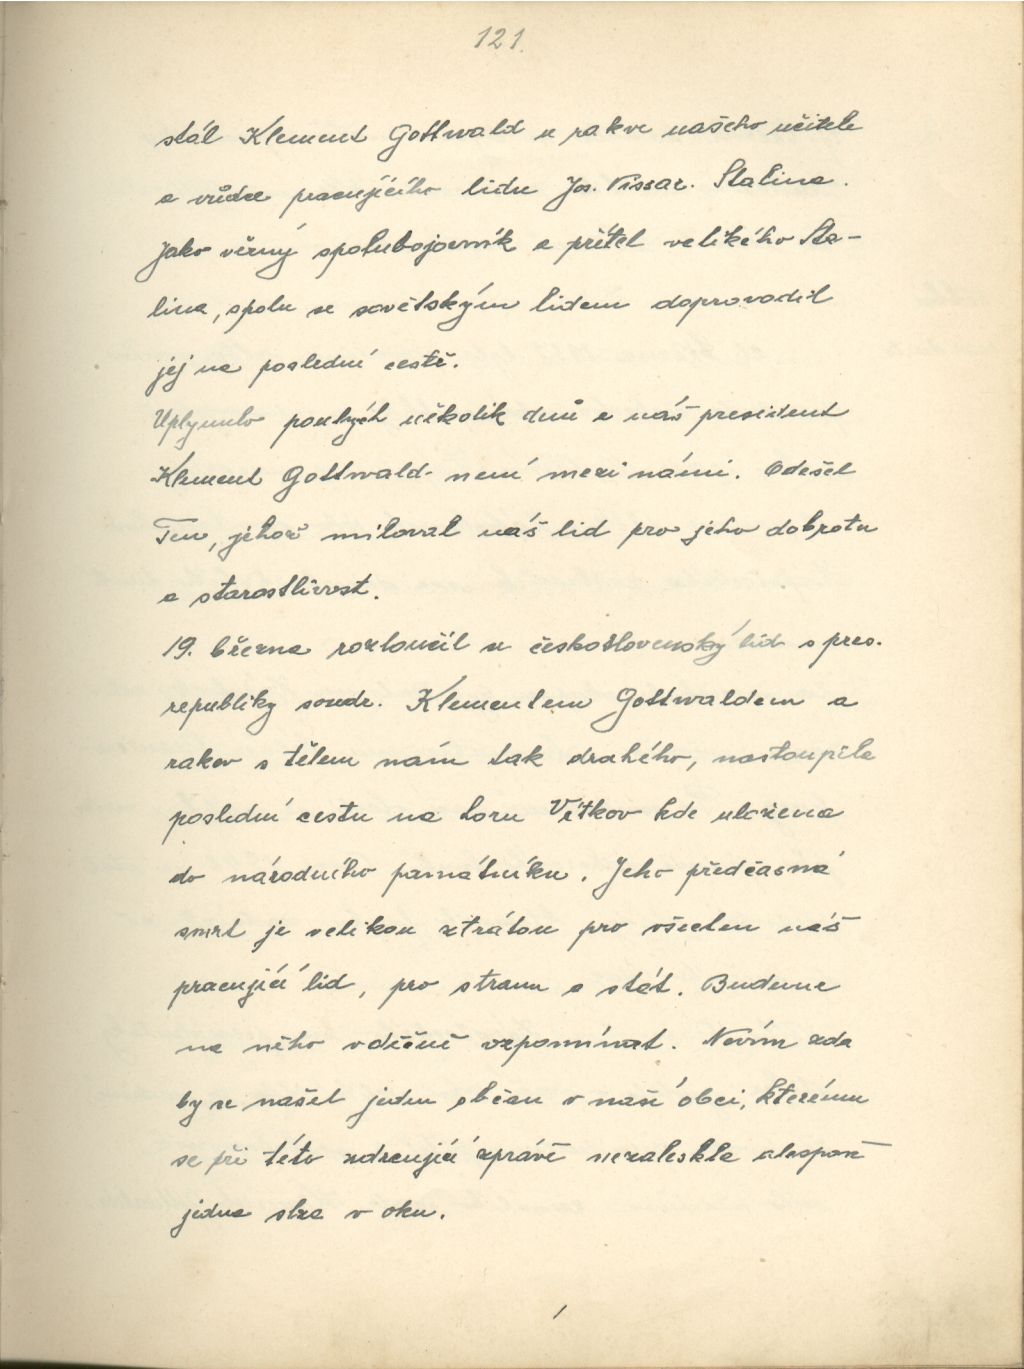 121.
stál Klement Gottwald u rakve našeho učitele
a vůdce pracujícího lidu Jos. Vissar. Stalina.
Jako věrný spolubojovník a přítel velikého Sta-
lina, spolu se sovětským lidem doprovodil
jej na poslední cestě.
Uplynulo pouhých několik dnů a náš president
Klement Gottwald není mezi námi. Odešel
Ten, jehož miloval náš lid pro jeho dobrotu
a starostlivost.
19. března rozloučil se československý lid s pres.
republiky soudr. Klementem Gottwaldem a
rakev s tělem nám tak drahého, nastoupila
poslední cestu na horu Vítkov kde uložena
do národního památníku. Jeho předčasná
smrt je velikou ztrátou pro všechen náš
pracující lid, pro stranu a stát. Budeme
na něho vděčně vzpomínat. Nevím zda
by se našel jeden občan v naší obci, kterému
se při této zdrcující zprávě nezaleskla alespoň
jedna slza v oku.